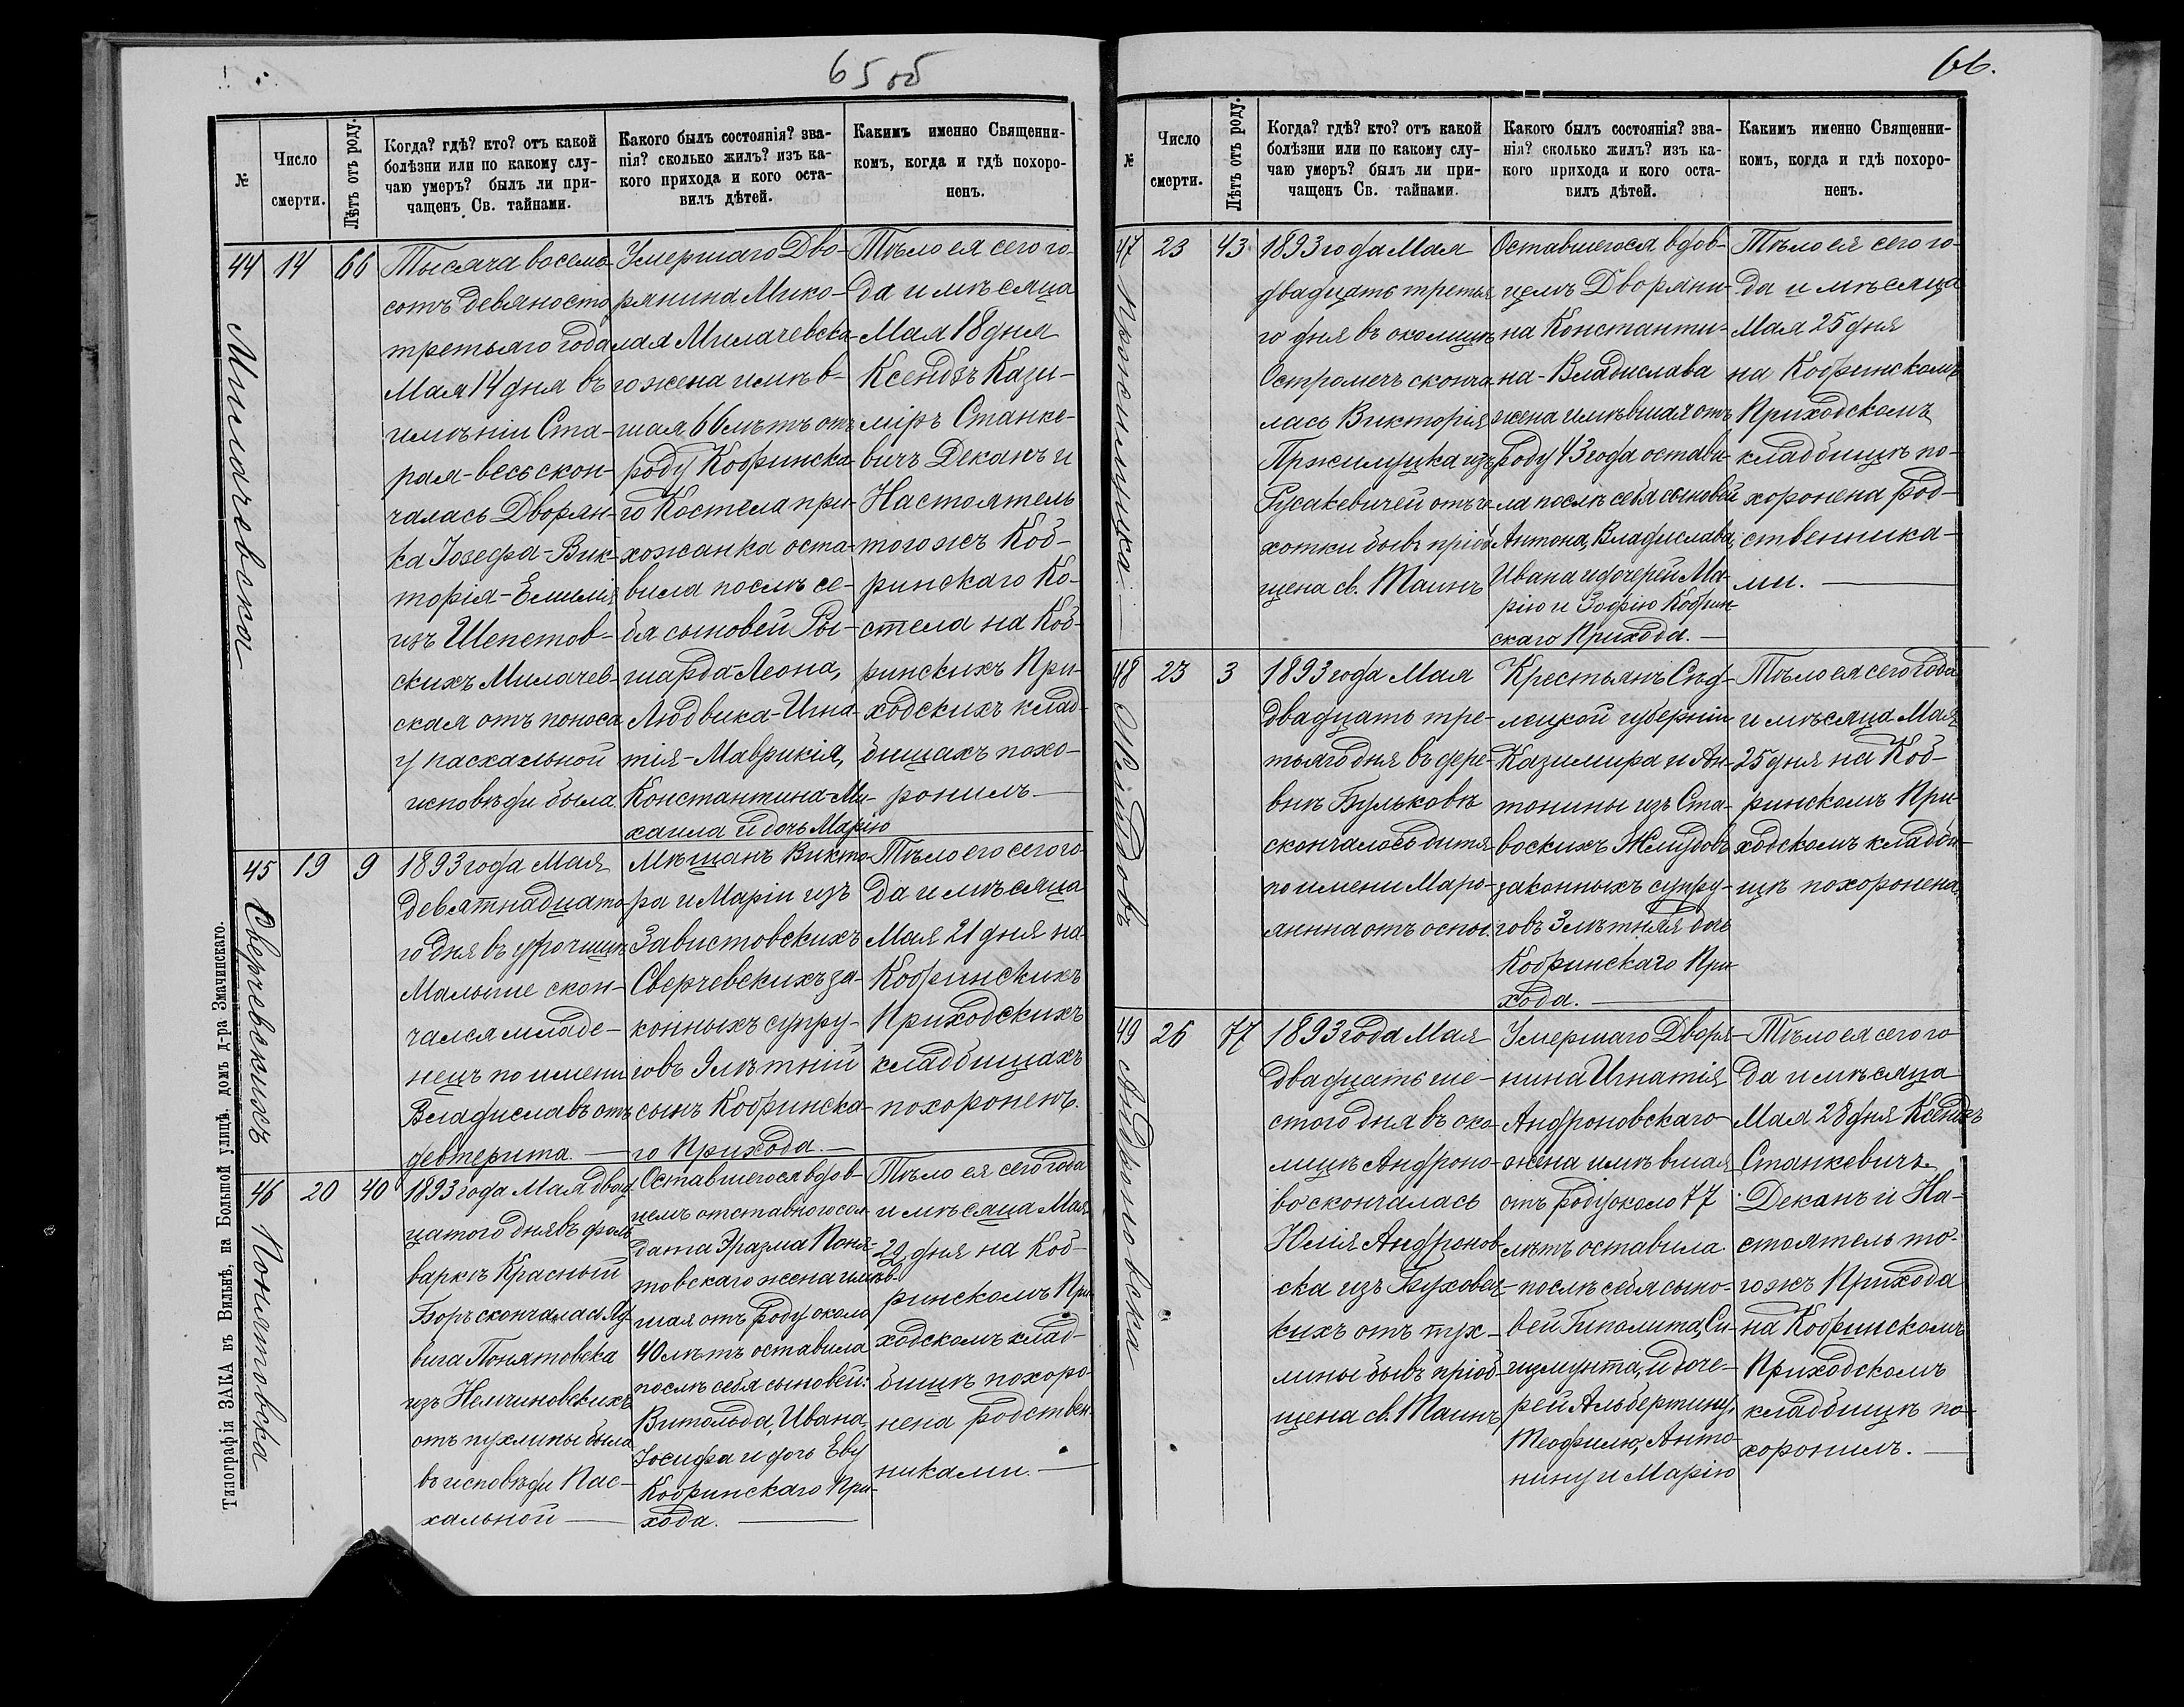 65 об
№
Число
смерти.
Лѣтъ отъ роду.
Когда? гдѣ? кто? отъ какой
болѣзни или по какому слу-
чаю умеръ? былъ ли при-
чащенъ Св. тайнами.
Какого былъ состоянія? зва-
нія? сколько жилъ? изъ ка-
кого прихода и кого оста-
вилъ дѣтей.
Какимъ именно Священни-
комъ, когда и гдѣ похоро-
ненъ.
44
Милачевска
14
66
Тысяча восемь-
сотъ девяносто
третьяго года
Мая 14 дня въ
имѣніи Ста-
рая-весь скон-
чалась Дворян-
ка Іозефа-Вик-
торія-Емилія
изъ Шепетов-
скихъ Милачев-
ская отъ поноса
у пасхальной
исповѣди была
Умершаго Дво-
рянина Мико-
лая Милачевска-
го жена имѣв-
шая 66 лѣтъ отъ
роду Кобринска-
го Костела при-
хожанка оста-
вила послѣ се-
бя сыновей Ры-
шарда-Леона,
Людвика-Игна-
тія-Маврикія,
Константина-Ми-
хаила и дочь Марію
Тѣло ея сего го-
да и мѣсяца
Мая 18 дня
Ксендзъ Кази-
міръ Станке-
вичъ Деканъ и
Настоятель
того жъ Коб-
ринскаго Ко-
стела на Коб-
ринскихъ При-
ходскихъ клад-
бищахъ похо-
ронилъ —
45
Сверчевскихъ
19
9
1893 года Мая
девятнадцато-
го дня въ урочищѣ
Малыше скон-
чался младе-
нецъ по имени
Владиславъ отъ
девтерита. —
Мѣщанъ Викто-
ра и Маріи изъ
Завистовскихъ
Сверчевскихъ за-
конныхъ супру-
говъ 9 лѣтній
сынъ Кобринска-
го Прихода. —
Тѣло его сего го-
да и мѣсяца
Мая 21 дня на
Кобринскихъ
Приходскихъ
кладбищахъ
похороненъ.
46
Понятовска
20
40
1893 года Мая двад-
цатого дня въ фоль-
варкѣ Красный
Боръ скончалась Яд-
вига Понятовска
изъ Немчиновскихъ
отъ пухлины была
въ исповѣди Пас-
хальной —
Оставшегося вдов-
цемъ отставного сол-
дата Эразма Поня-
товскаго жена имѣв-
шая отъ роду около
40 лѣтъ оставила
послѣ себя сыновей:
Витольда, Ивана,
Іосифа и дочь Еву
Кобринскаго При-
хода. —
Тѣло ея сего года
и мѣсяца Мая
22 дня на Коб-
ринскомъ При-
ходскомъ клад-
бищѣ похоро-
нена родствен-
никами. —
Типографія ЗАКА въ Вильнѣ, на Большой улицѣ, домъ д-ра Змачинскаго.
66.
№
Число
смерти.
Лѣтъ отъ роду.
Когда? гдѣ? кто? отъ какой
болѣзни или по какому слу-
чаю умеръ? былъ ли при-
чащенъ Св. тайнами.
Какого былъ состоянія? зва-
нія? сколько жилъ? изъ ка-
кого прихода и кого оста-
вилъ дѣтей.
Какимъ именно Священни-
комъ, когда и гдѣ похоро-
ненъ.
47
Пржилуцка
23
43
1893 года Мая
двадцать третья-
го дня въ околицѣ
Остромечъ сконча-
лась Викторія
Пржилуцка изъ
Русакевичей отъ чa-
хотки бывъ пріоб-
щена св. Таинъ
Оставшегося вдов-
цемъ Дворяни-
на Константи-
на-Владислава
жена имѣвшая отъ
роду 43 года остави-
ла послѣ себя сыновей
Антона, Владислава,
Ивана и дочерей Ма-
рію и Зофію Кобрин-
скаго Прихода. —
Тѣло ея сего го-
да и мѣсяца
Мая 25 дня
на Кобринскомъ
Приходскомъ
кладбищѣ по-
хоронена род-
ственника-
ми. —
48
Жлудовъ
23
3
1893 года Мая
двадцать тре-
тьяго дня въ дере-
внѣ Бульковѣ
скончалось дитя
по имени Марь-
янна отъ оспы.
Крестьянъ Сѣд-
лецкой губерніи
Казимира и Ан-
тонины изъ Ста-
воскихъ Жлудовъ
законныхъ супру-
говъ 3 лѣтняя дочь
Кобринскаго При-
хода. —
Тѣло ея сего года
и мѣсяца Мая
25 дня на Коб-
ринскомъ При-
ходскомъ кладби-
щѣ похоронена
49
Андроновска
26
77
1893 года Мая
двадцать ше-
стого дня въ око-
лицѣ Андроно-
во скончалась
Юлія Андронов-
ска изъ Буховец-
кихъ отъ пух-
лины бывъ пріоб-
щена св. Таинъ
Умершаго Дворя-
нина Игнатія
Андроновскаго
жена имѣвшая
отъ роду около 77
лѣтъ оставила
послѣ себя сыно-
вей Гиполита, Си-
гизмунта, и доче-
рей Альбертину,
Теофилю, Анто-
нину и Марію
Тѣло ея сего го
да и мѣсяца
Мая 28 дня Ксендзъ
Станкевичъ
Деканъ и На-
стоятель то-
го жъ Прихода
на Кобринскомъ
Приходскомъ
кладбищѣ по-
хоронилъ. —